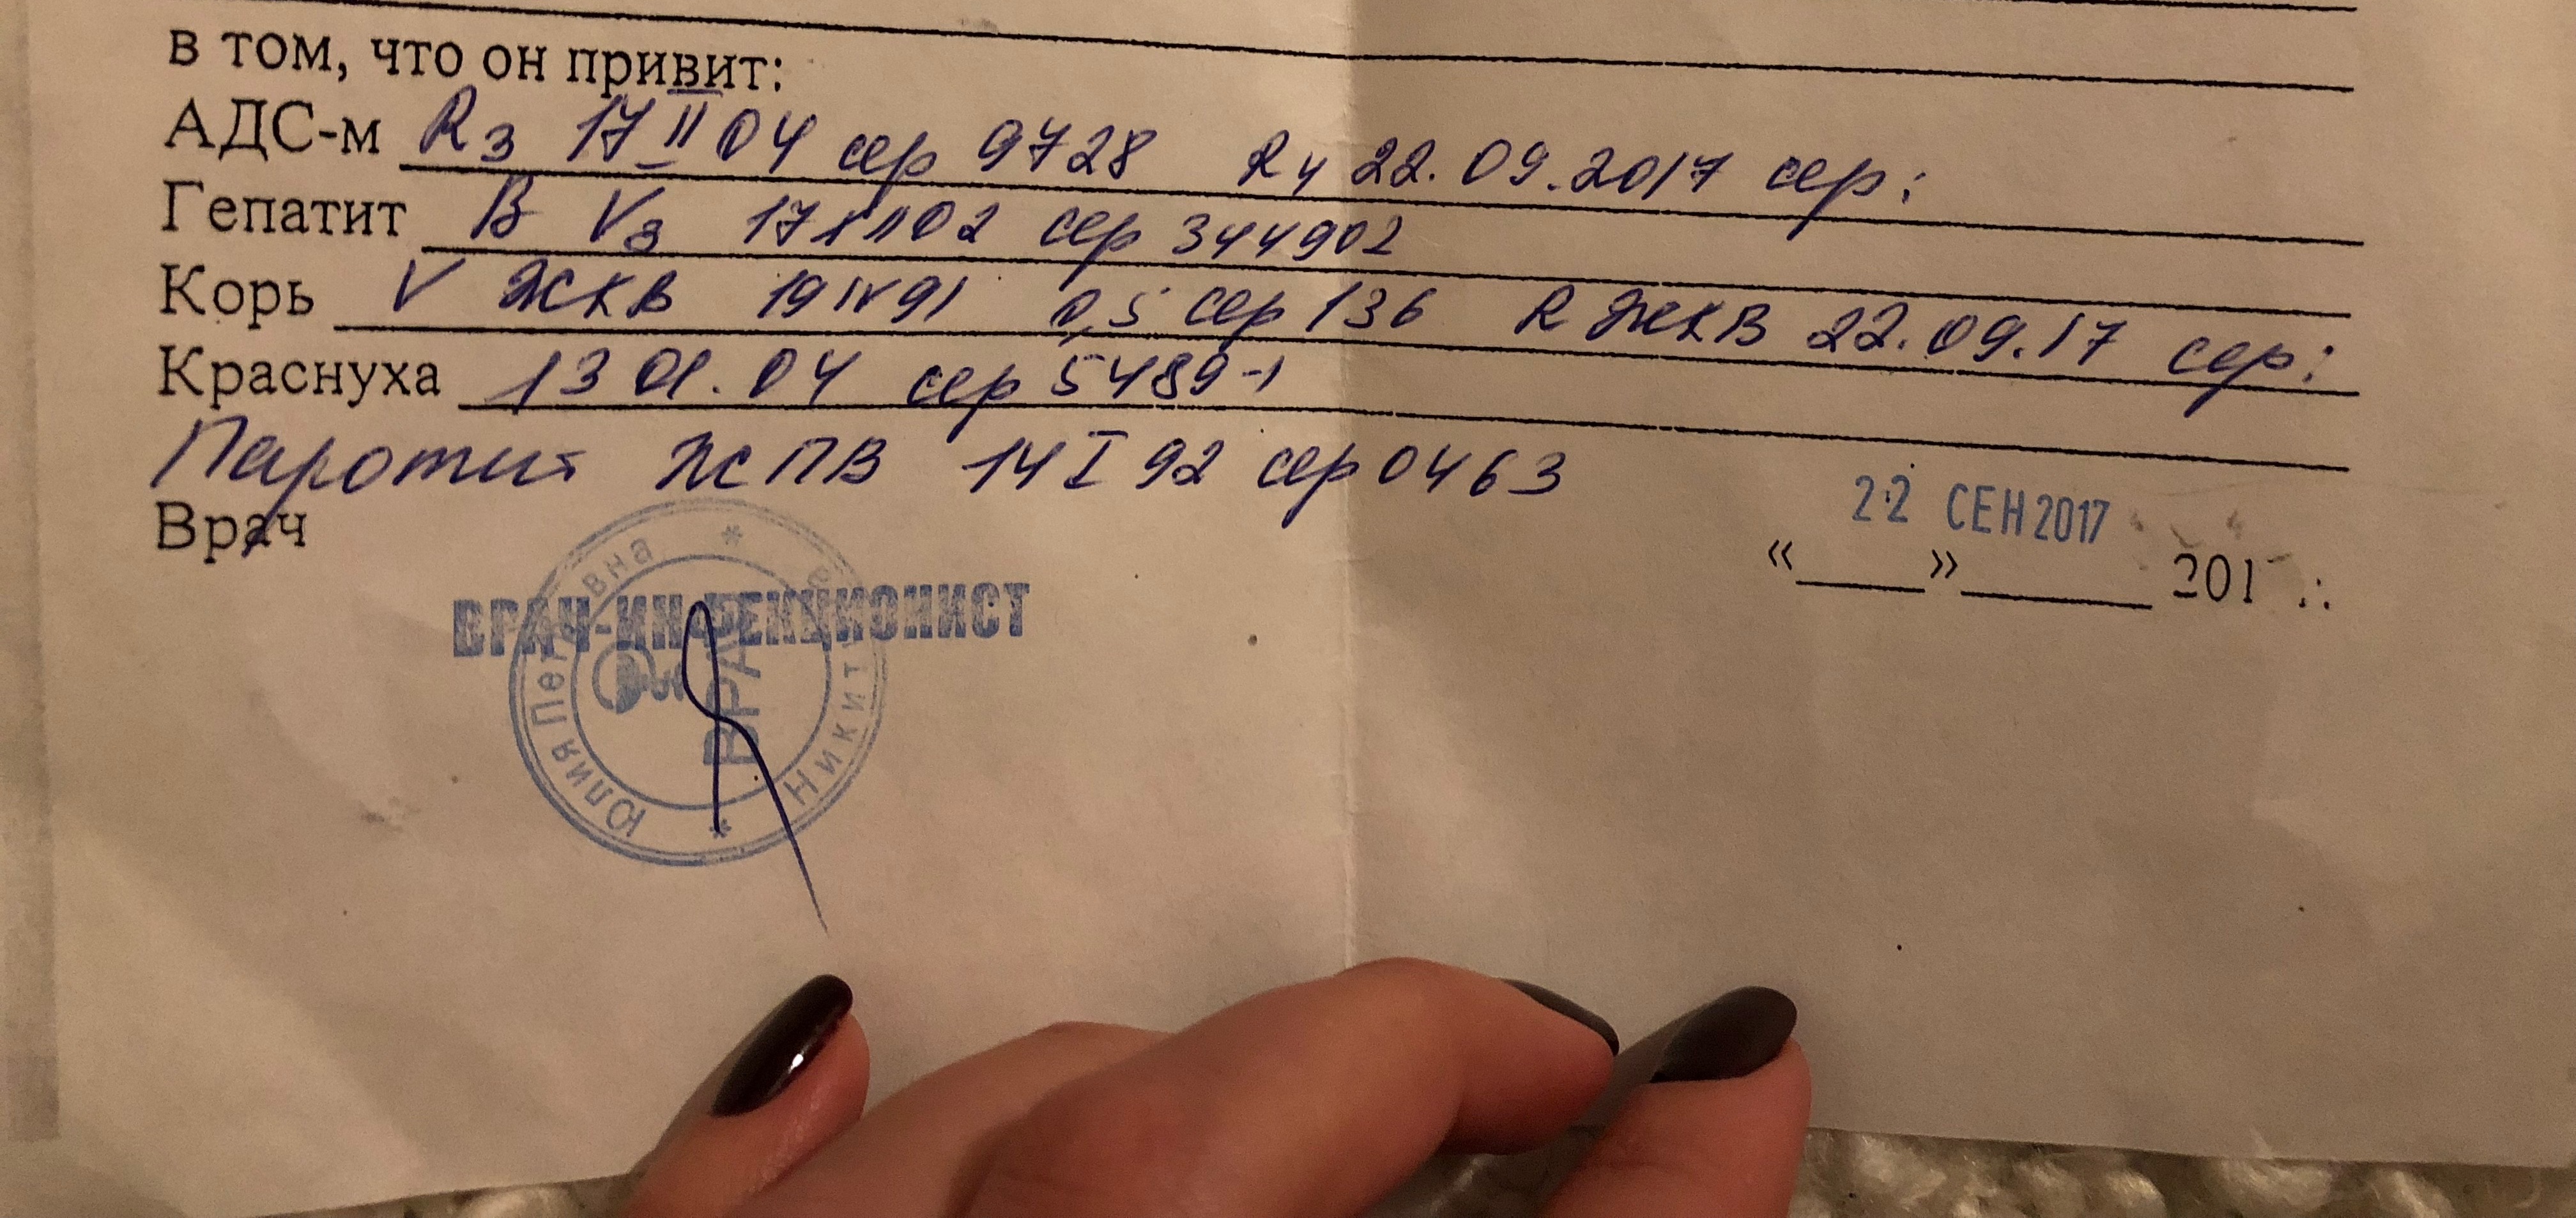 в том, что он привит:
АДС-м R3 17 II 04 сер 9728 R4 22.09.2017 сер:
Гепатит В V3 17 XII 02 сер 344902
Корь V ЖКВ 19 IV 91 0,5 сер 136 R ЖКВ 22.09.17 сер:
Краснуха 13 01.04 сер 5489-1
Паротит ЖПВ 14 I 92 сер 0463
Врач
22 СЕН 2017
« » 201
ВРАЧ-ИНФЕКЦИОНИСТ
Юлия